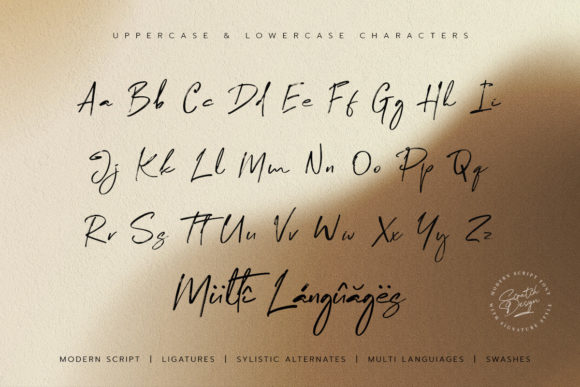 UPPERCASE & LOWERCASE CHARACTERS
Aa Bb Cc Dd Ee Ff Gg Hh Ii
Jj Kk Ll Mm Nn Oo Pp Qq
Rr Ss Tt Uu Vv Ww Xx Yy Zz
Mültî Lángûăgës
MODERN SCRIPT FONT
Scratch
Design
WITH SIGNATURE STYLE
MODERN SCRIPT | LIGATURES | SYLISTIC ALTERNATES | MULTI LANGUIAGES | SWASHES